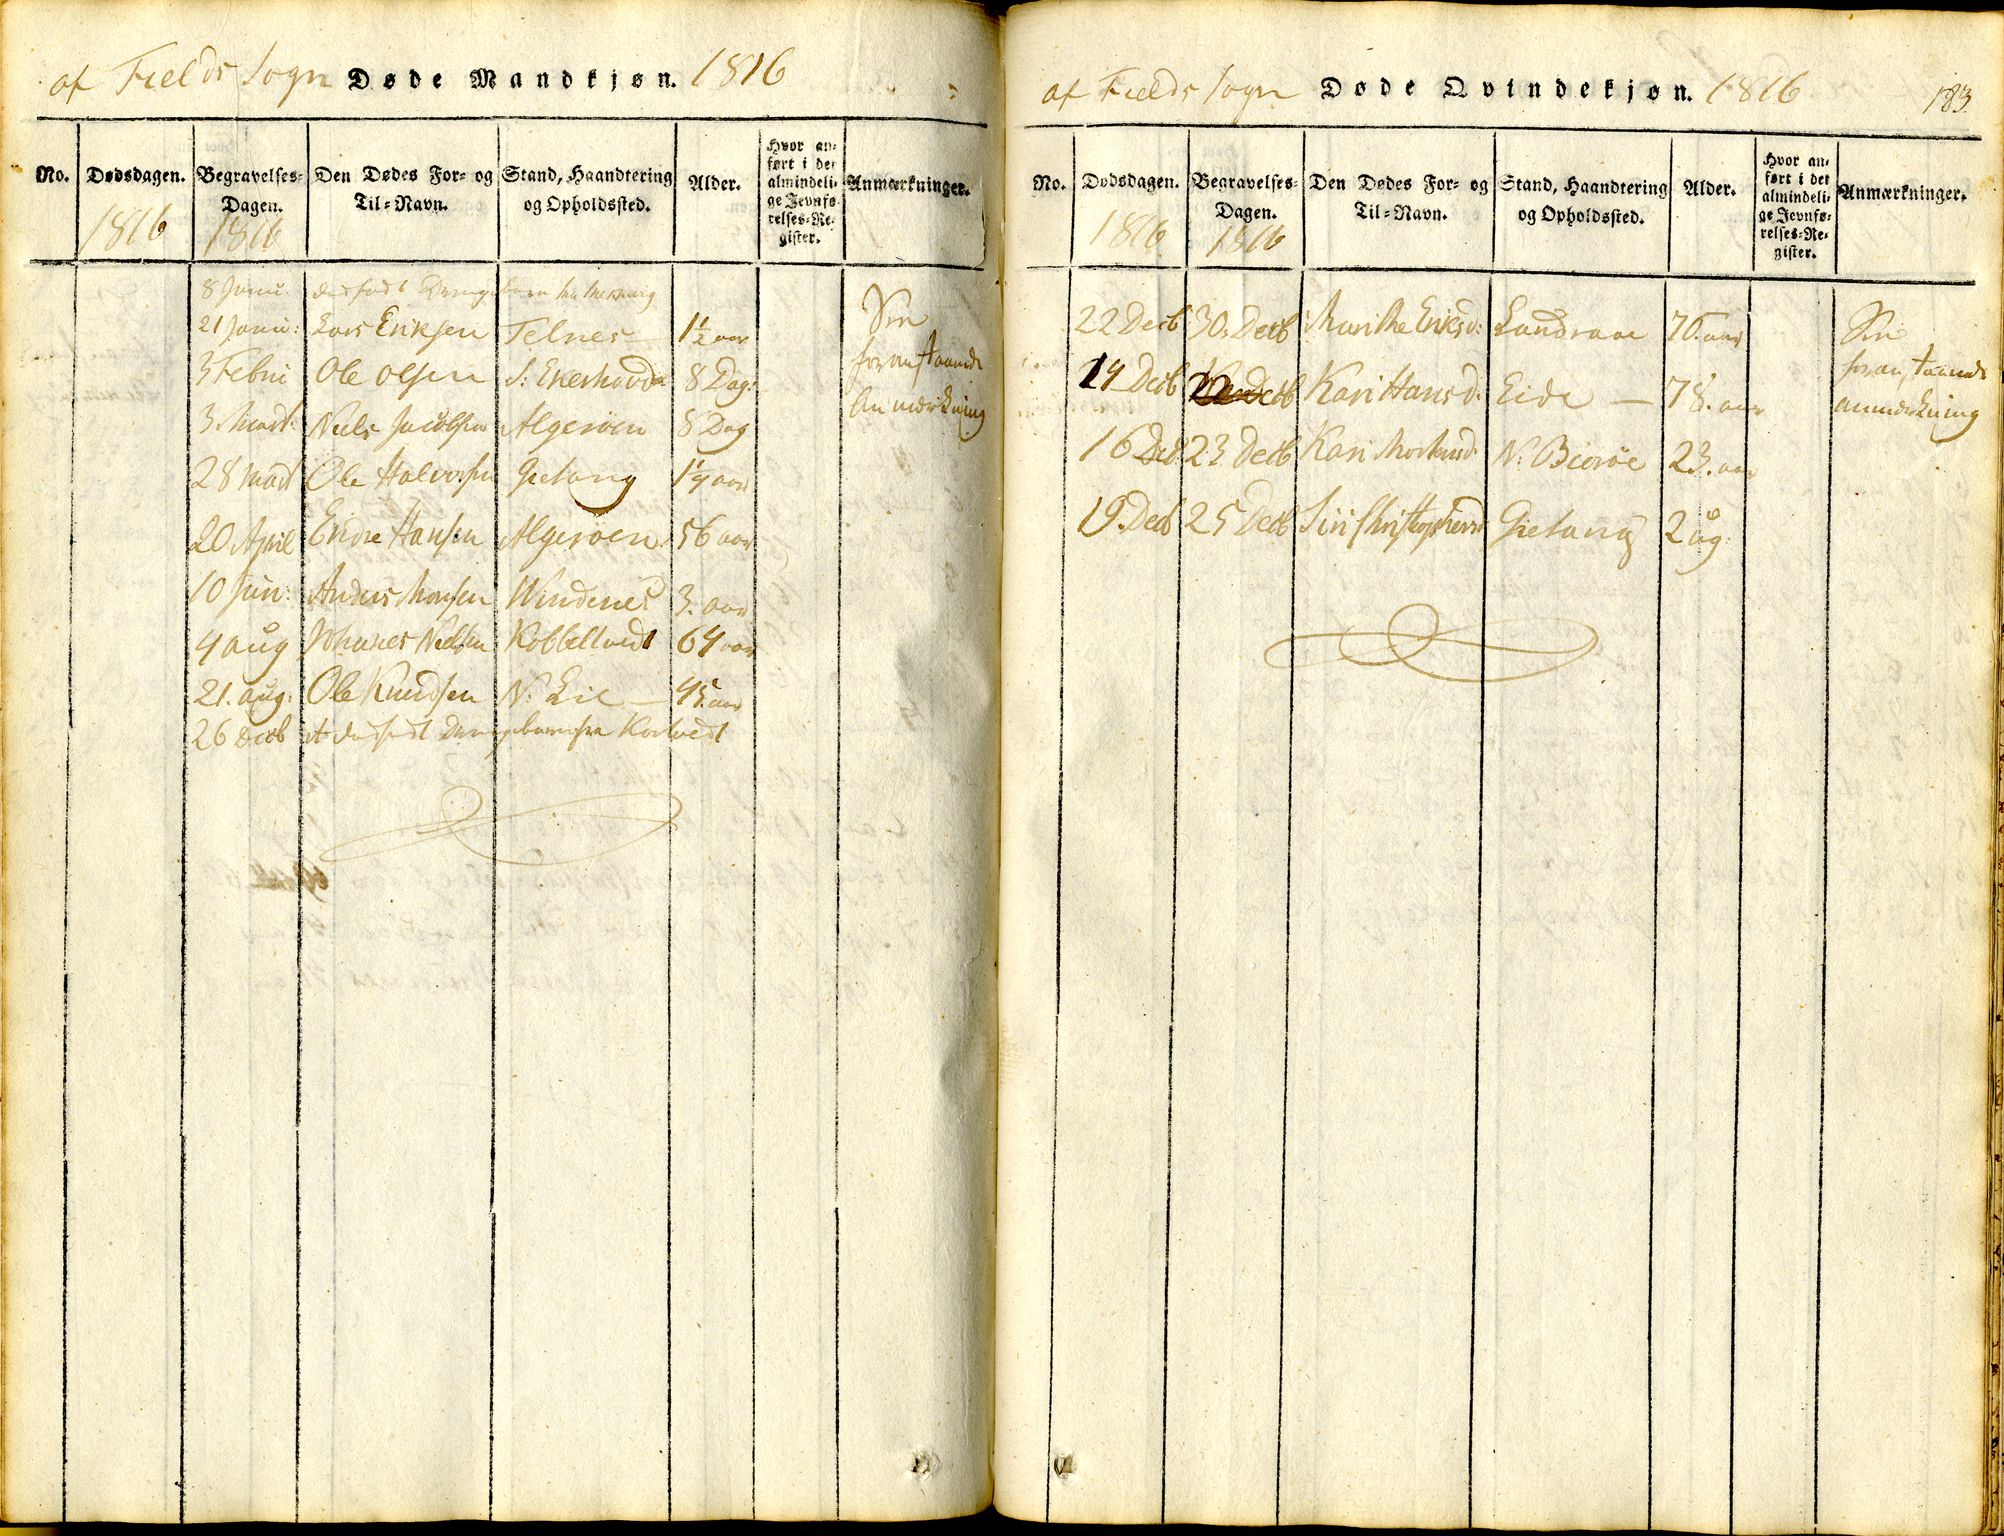 af Fields Sogn Døde Mandkjøn. 1816
No. Dødsdagen. Begravelses-Dagen. Den Dødes For- og Til-Navn. Stand, Haandtering og Opholdssted. Alder. Hvor anført i det almindelige Jevnførelses-Register. Anmærkninger.
1816 1816
8 Janu: dødfødt Drengebarn fra
21 Janu: Lars Eriksen Telnes 1½ aar Sin
3 Febru Ole Olsen S: Ekerhovda 8 Dag: foranstaaende
3 Mart: Niels Jacobsen Algerøen 8 Dag Anmærkning
28 Mart Ole Halvorsen Gietang 1¼ aar
20 April Endre Hansen Algerøen 56 aar
10 Jun: Anders Monsen Windenes 3. aar
4 aug Johanes Nielsen Kobbeltvedt 64 aar
21. aug: Ole Knudsen N: Eie — 45. aar
26 Decb et dødfødt Drengebarn fra Kortvedt
af Fields Sogn Døde Qvindekjøn. 1816 183.
No. Dødsdagen. Begravelses-Dagen. Den Dødes For- og Til-Navn. Stand, Haandtering og Opholdssted. Alder. Hvor anført i det almindelige Jevnførelses-Register. Anmærkninger.
1816 1816
22 Decb 30. Decb Marithe Eriksd: Landraae 76. aar Sin
14 Decb 22 Decb Kari Hansd: Eide — 78. aar foranstaaende
anmærkning
16 Decb 23 Decb Kari N: Biorøe 23. aar
19. Decb 25 Decb Siri Christophersd Gietang 2 ug: